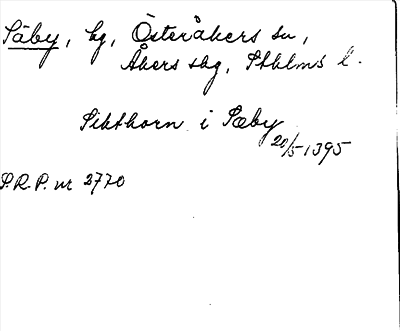 Säby, hg, Österåkers sn,
Åkers skg, Sthlms l.
Sikthorn i Sæby
20/5-1395
S.R.P. nr 2770